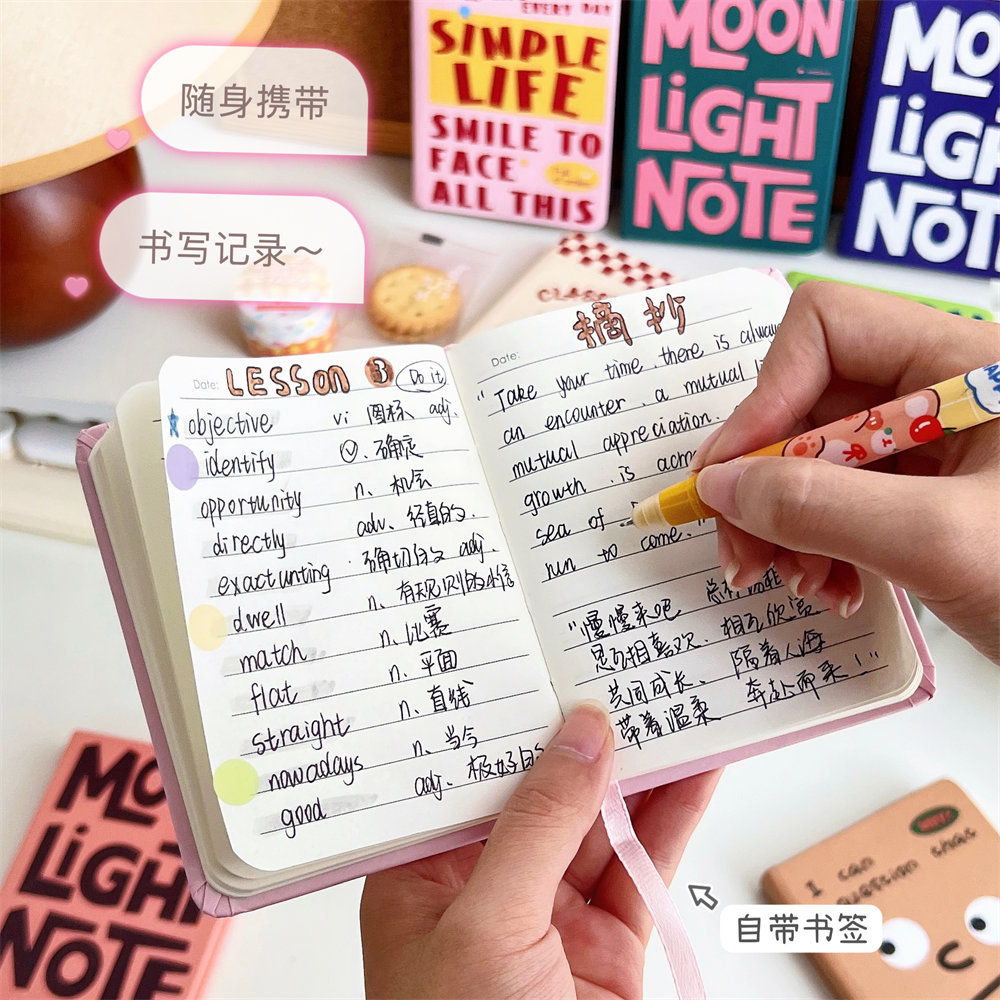 随身携带
书写记录～
EVERY DAY
SIMPLE
LIFE
SMILE TO
FACE
ALL THIS
MOON
LIGHT
NOTE
MO
LIG
NOT
CLAS
Date: LESSON 3 Do it
objective vi 图标 adj.
identify 确定
opportunity n. 机会
directly adv. 径直的.
exactunting 确切的 adj.
dwell n.
match n. 比赛
flat n. 平面
straight n. 直线
nawadays n. 当今
good adj. 极好的
Date: 摘抄
"Take your time. there is always
an encounter. a mutual
mutual appreciation.
growth. is
sea of
run to come.
"慢慢来吧 总有
是互相喜欢. 相互欣赏
共同成长. 隔着人海
带着温柔 奔赴而来！"
自带书签
MO
LIGH
NOTE
I can
question